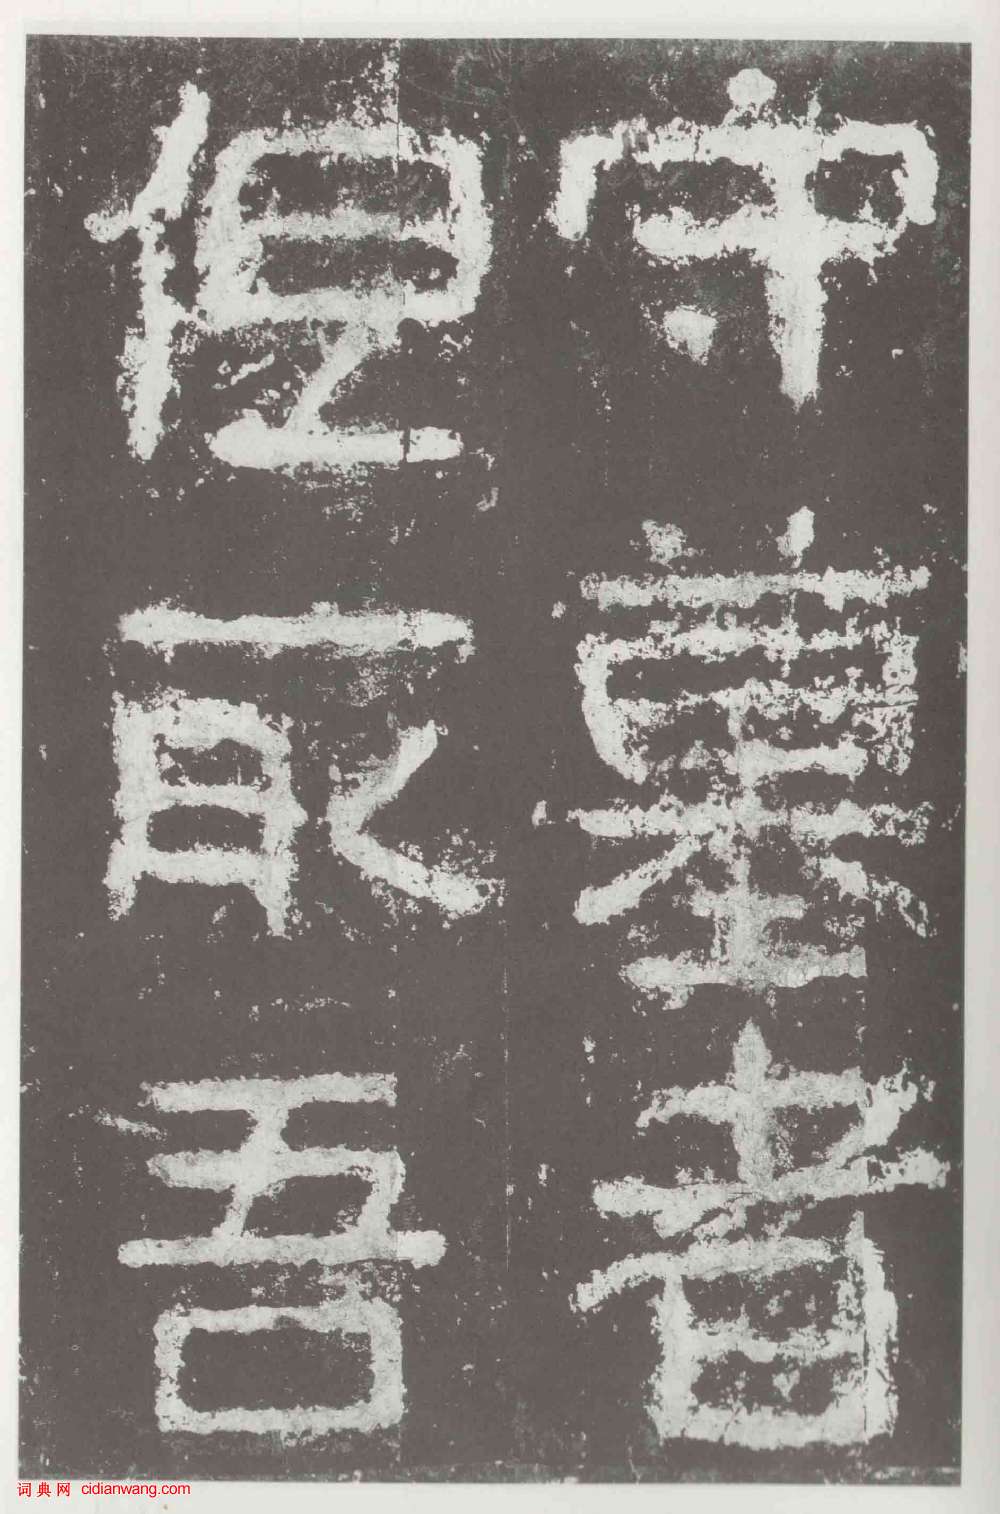 守墓者
但取吾
词典网 cidianwang.com